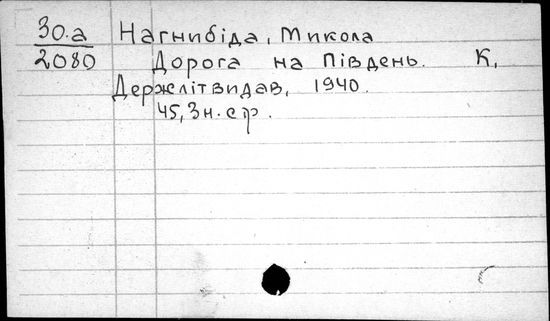 30.а Нагнибіда, Микола
2080 Дорога на Південь. К,
Держлітвидав, 1940.
45, 3н. стр.